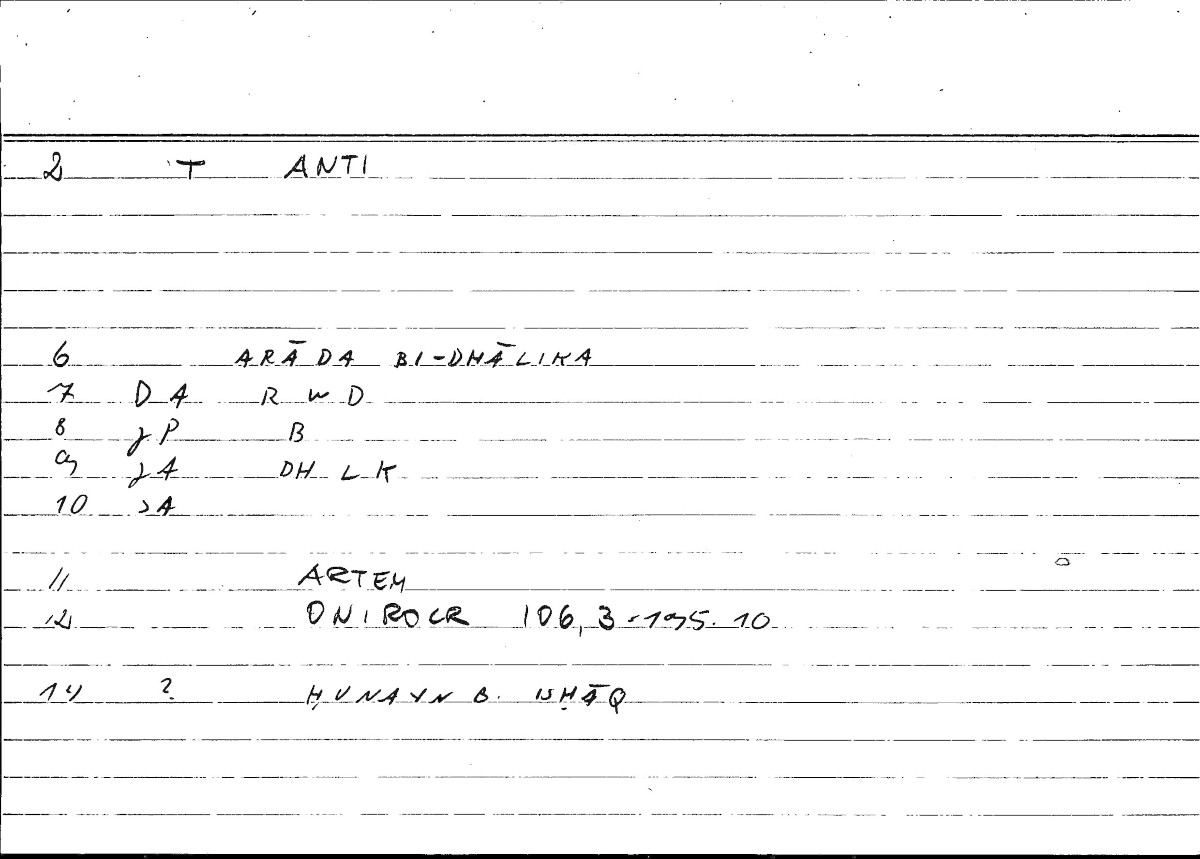 2 T ANTI
6 ARĀDA BI-DHĀLIKA
7 DA R W D
8 γP B
9 γA DH L K
10 γA
11 ARTEM
12 ONIROCR 106, 3 - 195. 10
14 ? ḤUNAYN B. ISḤĀQ